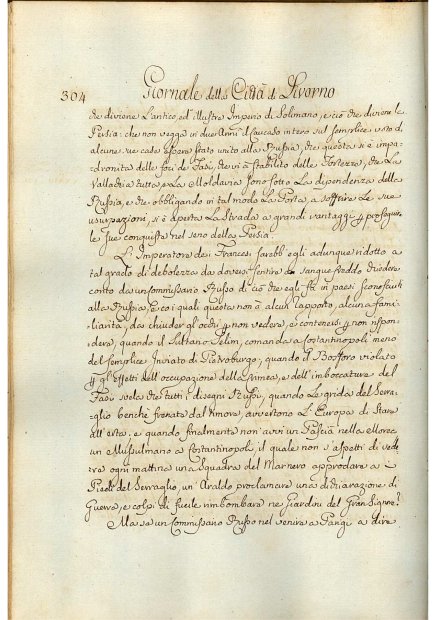 304 Giornale della Città di Livorno
che divenne l'antico ed illustre Imperio di Solimano, e ciò che divenne la
Persia: che non vegga in due Anni il Caucaso intero sul semplice voto d'
alcune sue case essere stato unito alla Russia, che questa si è impa-
dronita delle foci del Fasi, che vi à stabilito delle Fortezze, che La
Valachia tutta e La Moldavia sono sotto La dependenza della
Russia, e che obbligando in tal modo La Porta, a soffrire Le sue
usurpazioni, si è aperta La Strada a grandi vantaggi e proseguire
Le sue conquiste nel seno della Persia.
L'Imperatore dei Francesi sarebb' egli adunque ridotto a
tal grado di debolezza da dover sentire a sangue freddo chiedere
conto da un Commissario Russo di ciò che egli fà in paesi sconosciuti
alla Russia e coi quali questa non à alcun rapporto, alcuna fami-
liarità, da chiuder gli occhi p non vedere, e contenersi p non rispon-
dere, quando il Sultano Selim, comanda a Costantinopoli meno
del semplice Inviato di Pietroburgo, quando il Bosforo violato
p gl'effetti dell'occupazione della Crimea, e dell'imboccature del
Fasi svela che tutti i disegni Russi, quando Le grida del Serra-
glio benchè frenate dal timore, avvertono L'Europa di stare
all'erta, e quando finalmente non avvi un Pascià nella Morea
un Musulmano a Costantinopoli, il quale non s'aspetti di vede-
re ogni mattina una Squadra del Mar nero approdare a
Piedi del Serraglio, un Araldo proclamare una dichiarazione di
Guerra, e colpi di fucile rimbombare ne Giardini del Gran Signore?
Ma se un Commissario Russo nel venire a Parigi a dire